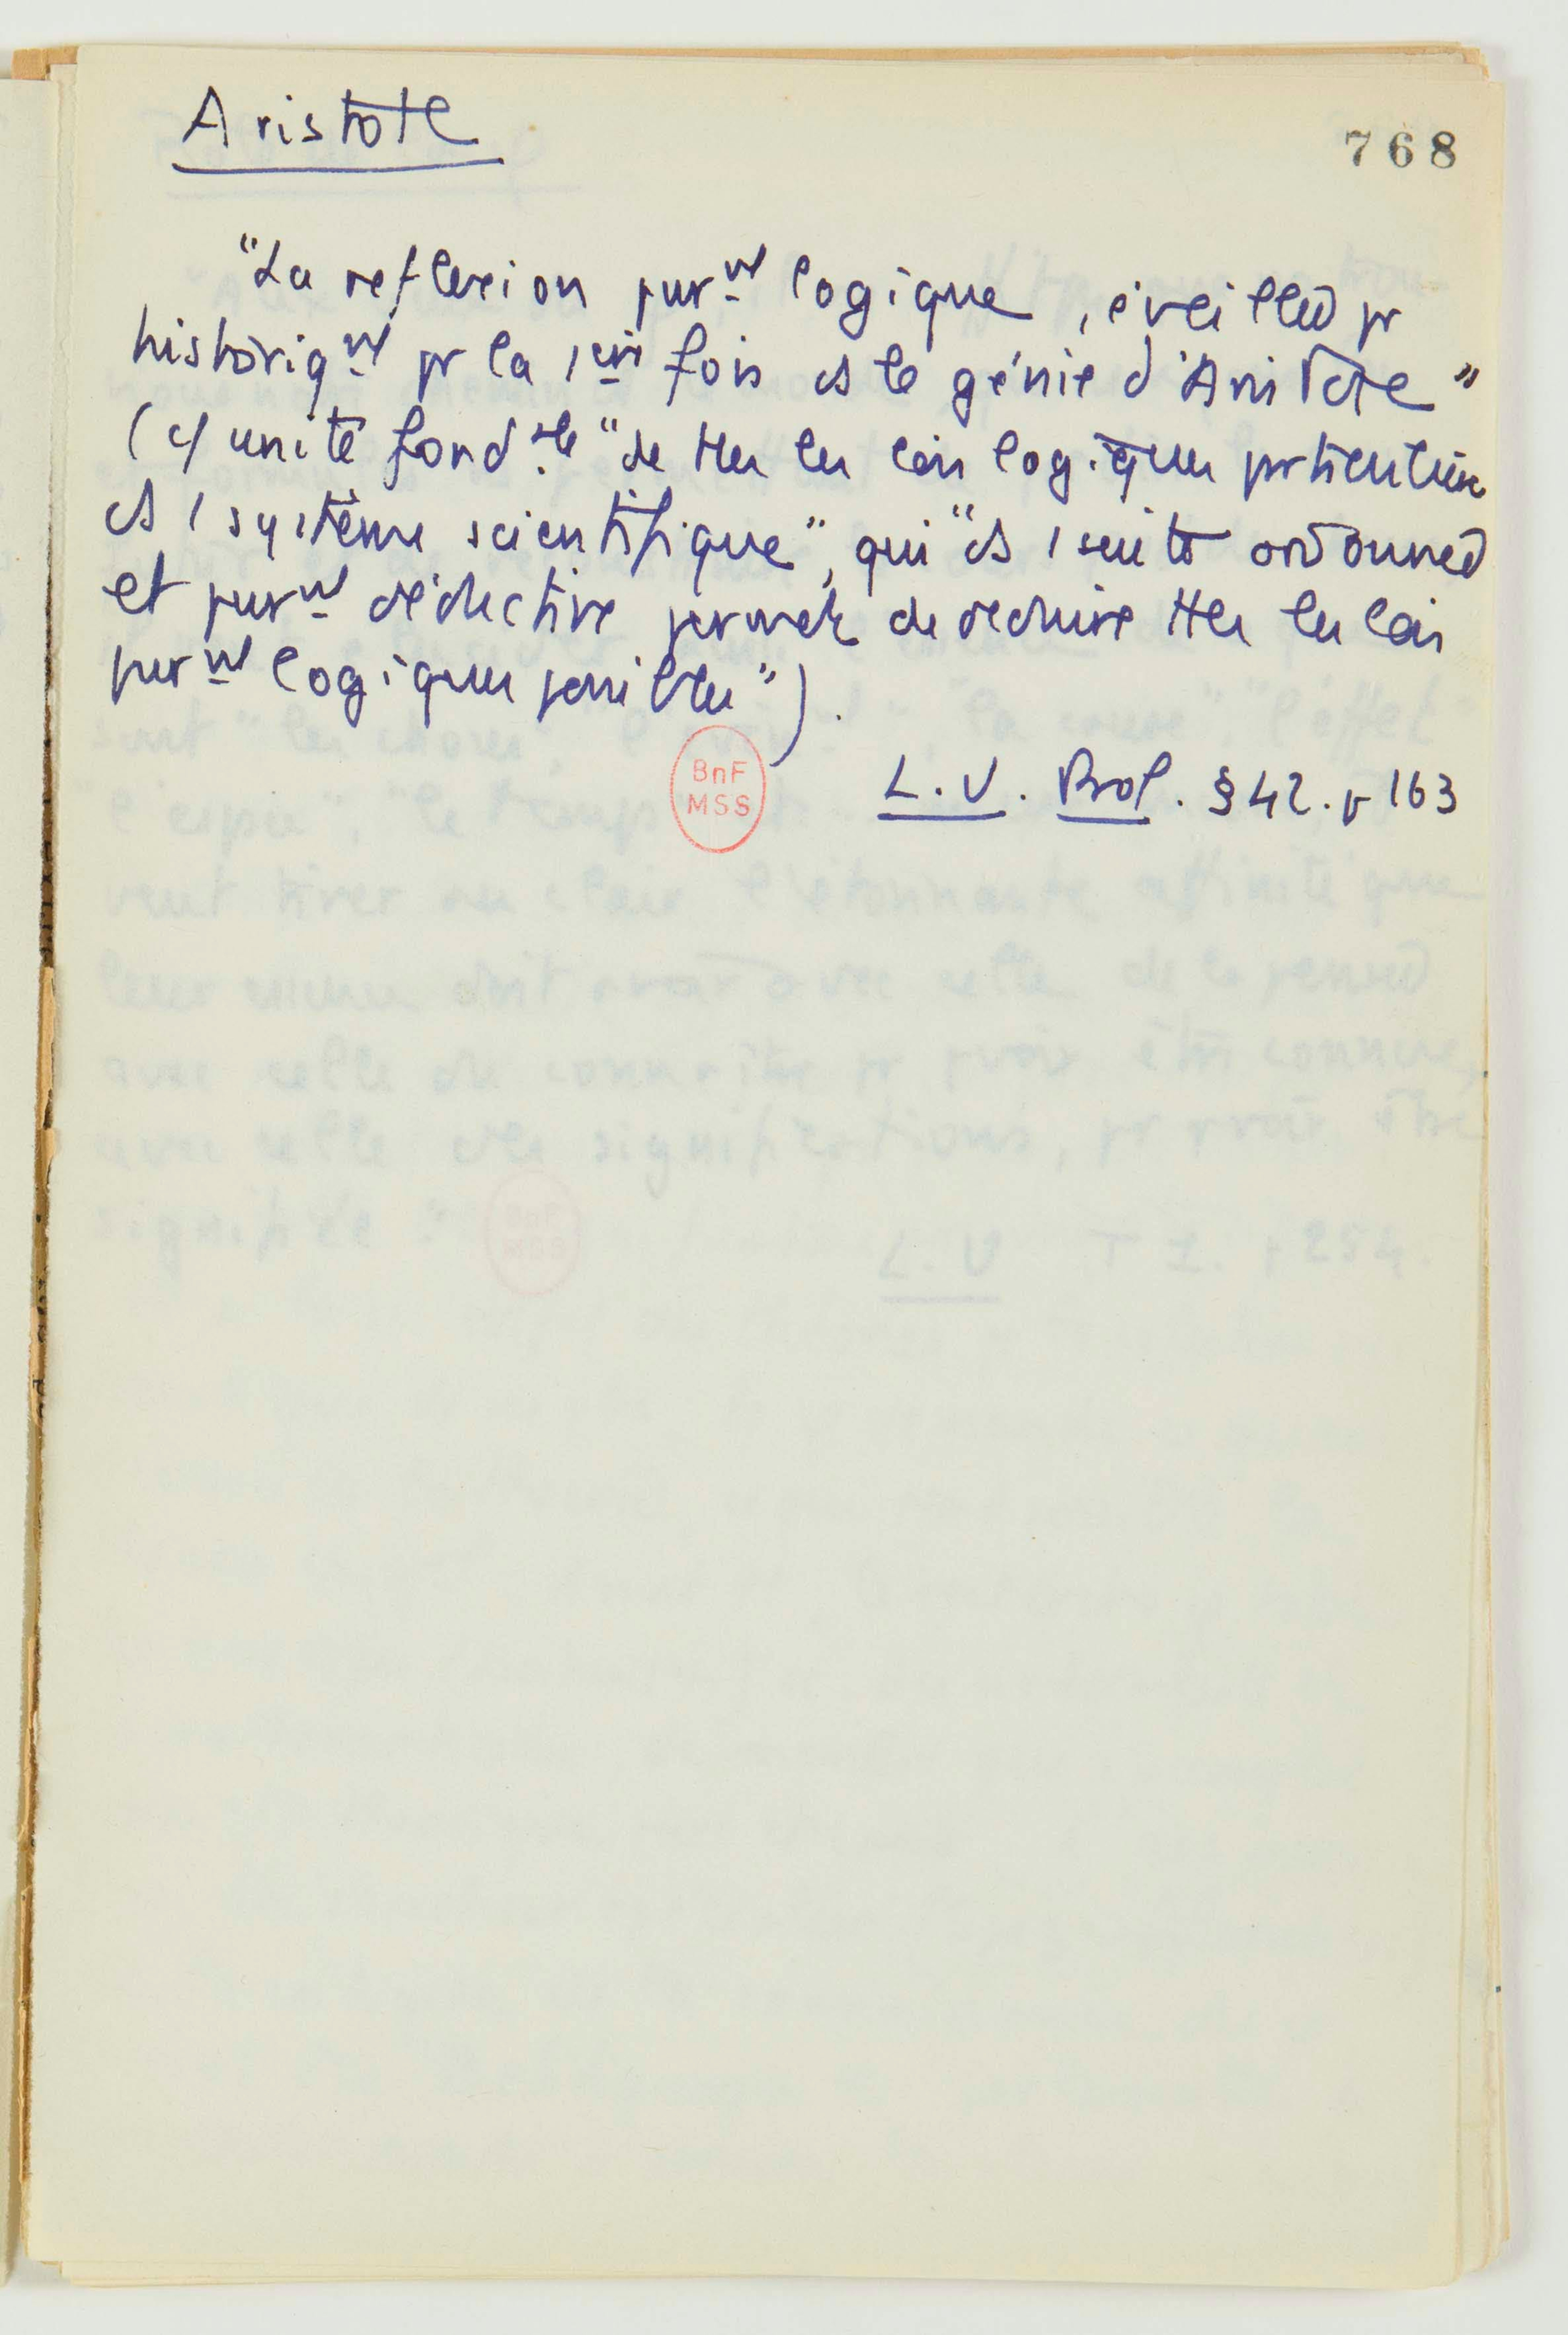 Aristote
768
"La reflexion purnt logique, éveillée pr
historiqnt pr la 1ère fois ds le génie d'Aristote"
(cf unité fond.ale "de ttes les lois logiques prticulières
ds 1 système scientifique", qui "ds 1 suite ordonnée
et purnt déductive permet de déduire ttes les lois
purnt logiques possibles").
BnF
MSS
L.U. Prol. § 42. p 163